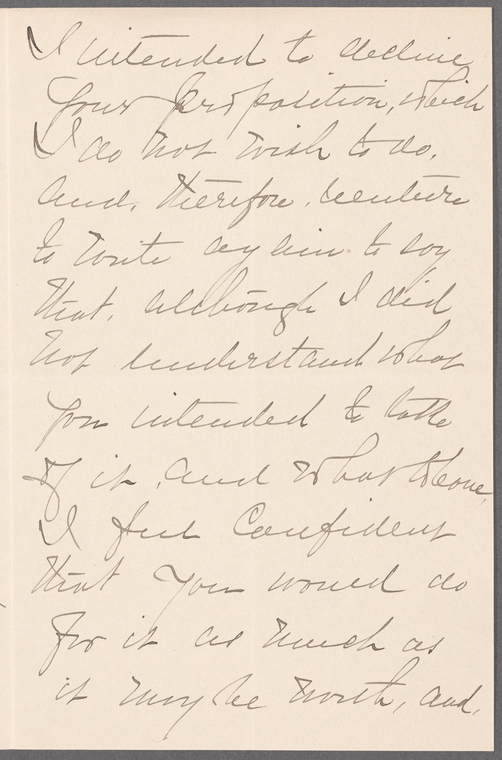 I intended to decline
your proposition, which
I do not wish to do,
and, therefore, venture
to write again to say
that, although I did
not understand what
you intended to take
of it, and what leave,
I feel confident
that you would do
for it as much as
it may be worth, and,